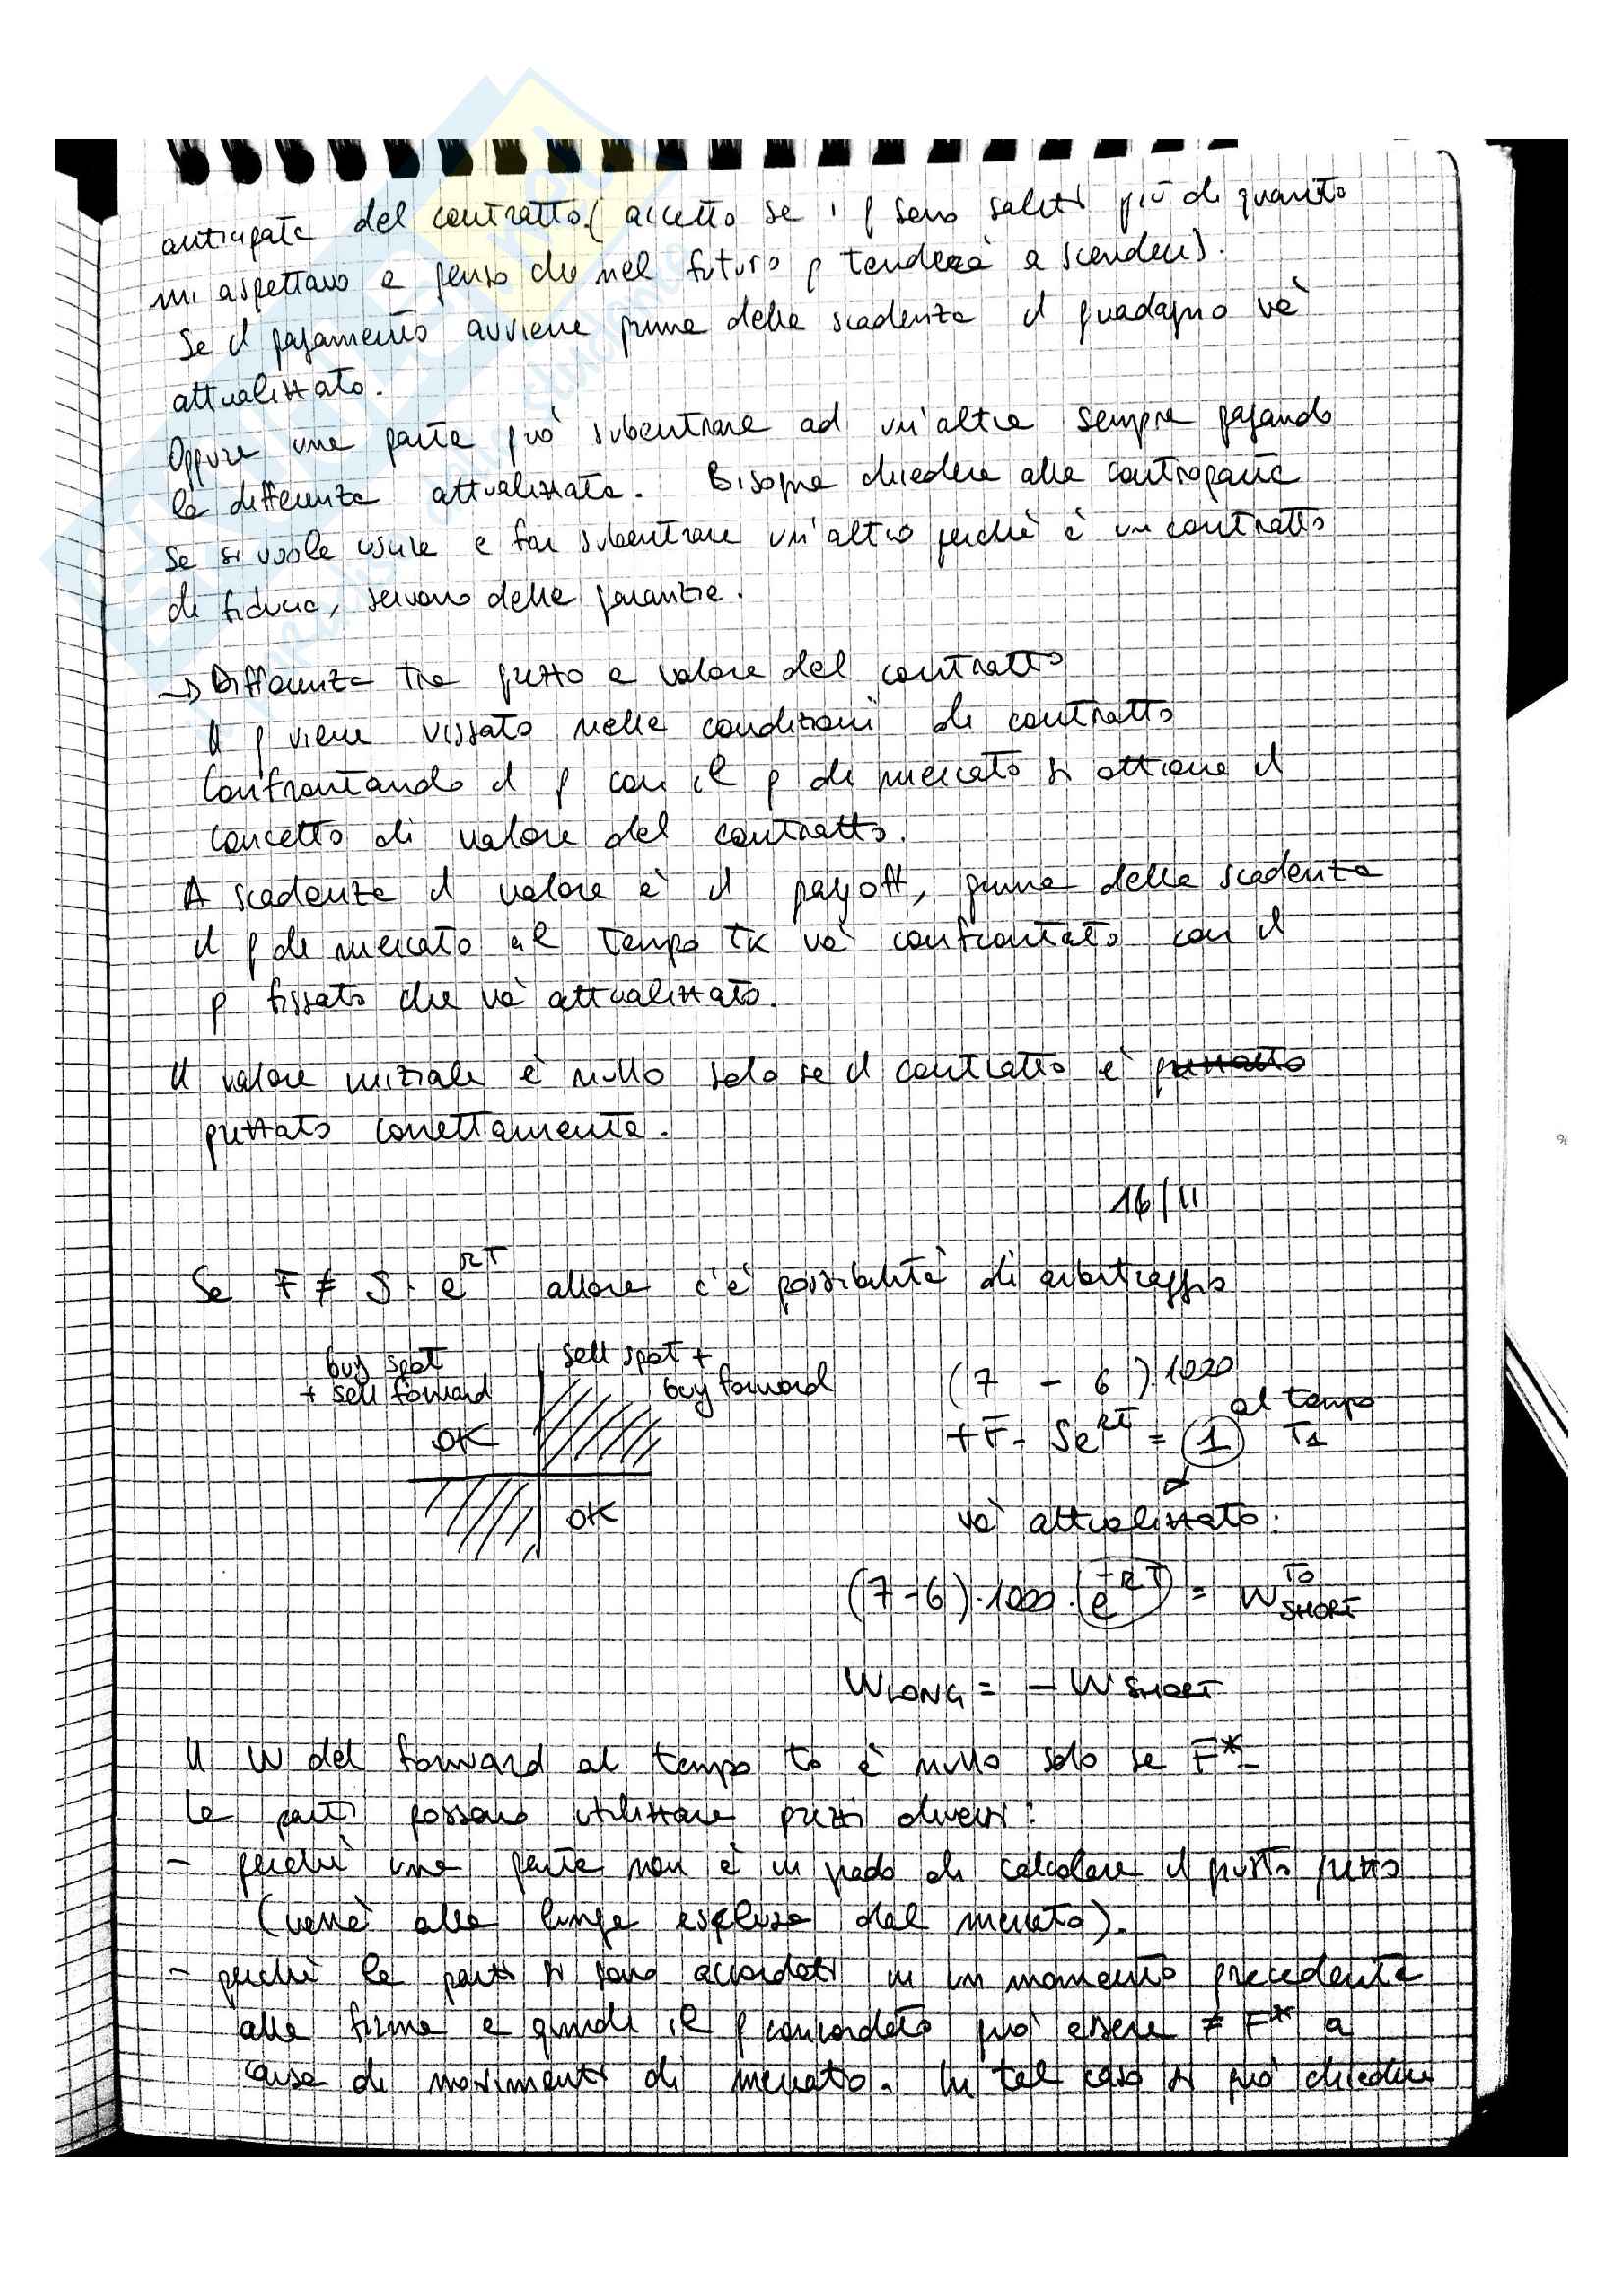 anticipata del contratto (accetto se i p sono saliti più di quanto
mi aspettavo e penso che nel futuro p tenderà a scendere).
Se il pagamento avviene prima della scadenza il guadagno và
attualizzato.
Oppure una parte può subentrare ad un'altra sempre pagando
la differenza attualizzata. Bisogna chiedere alla controparte
se si vuole uscire e far subentrare un'altro perchè è un contratto
di fiducia, servono delle garanzie.
→ Differenza tra prezzo e valore del contratto
Il p viene vissato nelle condizioni di contratto
Confrontando il p con il p di mercato si ottiene il
concetto di valore del contratto.
A scadenza il valore è il payoff, prima della scadenza
il p di mercato al tempo TK và confrontato con il
p fissato che và attualizzato.
Il valore iniziale è nullo solo se il contratto è prezzato
prezzato correttamente.
16/11
Se F ≠ S · e^RT allora c'è possibilità di arbitraggio
buy spot + sell forward
sell spot + buy forward
OK
OK
(7 - 6) · 1000
+F - Se^RT = 1 al tempo T1
và attualizzato:
(7-6) · 1000 · e^-RT = W SHORT T0
W LONG = - W SHORT
Il W del forward al tempo t0 è nullo solo se F*-
Le parti possono utilizzare prezzi diversi:
- perchè una parte non è in grado di calcolare il giusto prezzo
(verrà alla lunga esclusa dal mercato).
- perchè le parti si sono accordati in un momento precedente
alla firma e quindi il p concordato può essere ≠ F* a
causa di movimenti di mercato. In tal caso si può chiedere